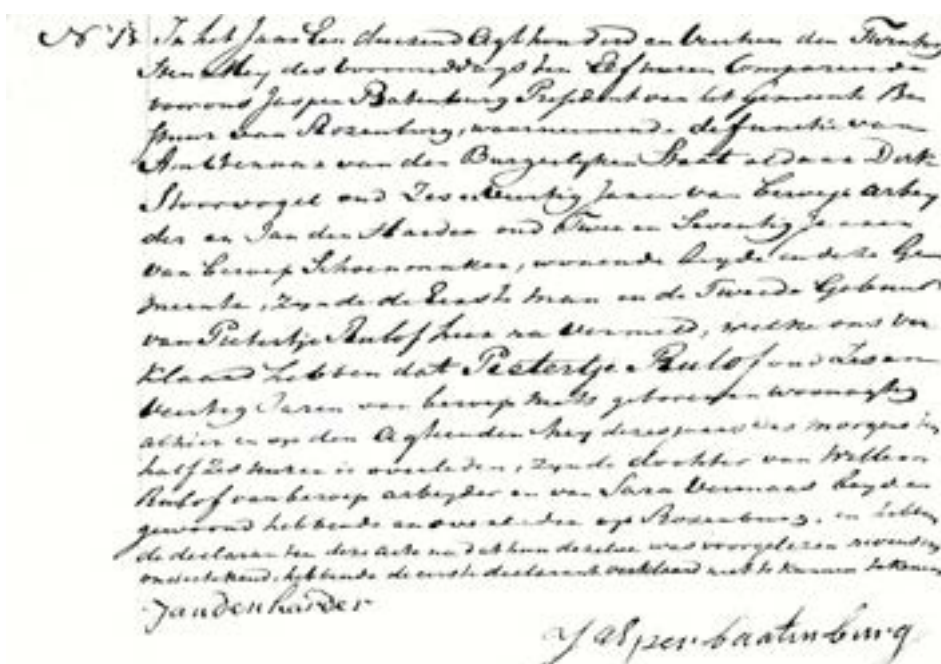 No 13 In het Jaar Een duizend Agt honderd en veertien den Twintig
sten Mey des voormiddags ten Elf uuren Compareerde
voor ons Jasper Batenburg President van het Gemeente Be
stuur van Rozenburg, waarnemende de functie van
Ambtenaar van den Burgerlyken Staat aldaar Dirk
Stoorvogel oud Jaaren van beroep Arbey
der en Jan den Harder oud Twee en Seventig Jaaren
van beroep Schoenmaker, wonende beyde in deze Ge
meente, zynde de Eerste man en de Tweede Gebuur
van Pietertje Rulof hier na vermeld, welke ons ver
klaard hebben dat Pietertje Rulof oud Zes en
Veertig Jaren van beroep geboren en woonagtig
alhier en op den Agtienden Mey dezes jaars des morgens ten
half Zes uuren is overleden, zynde dochter van Willem
Rulof van beroep arbeyder en van Sara Vermaas beyde
gewoond hebbende en overleden op Rozenburg, en hebben
de declaranten deze Acte na dat hun dezelve was voorgelezen nevens ons
ondertekend, hebbende de eerste declarant verklaard niet te kunnen tekenen
Jan den harder
Jasper baatenburg